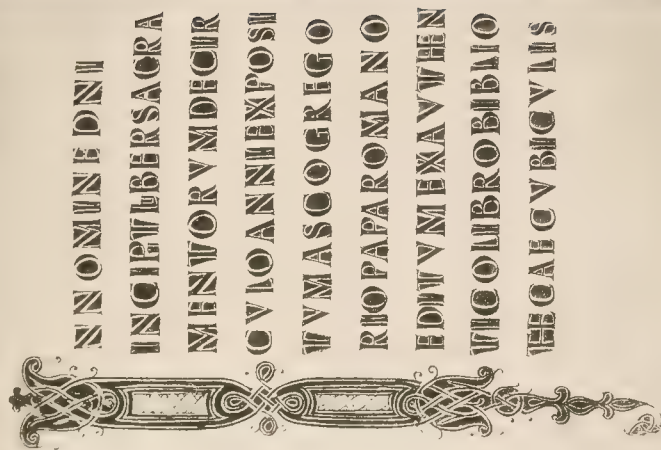 INNOMINEDNI
INCIPITLIBERSACRA
MENTORVMDECIR
CVLOANNIEXPOSI
TVMASCOGREGO
RIOPAPAROMANO
EDITVMEXAVTHEN
TICOLIBROBIBLIO
THECAECVBICVLIS